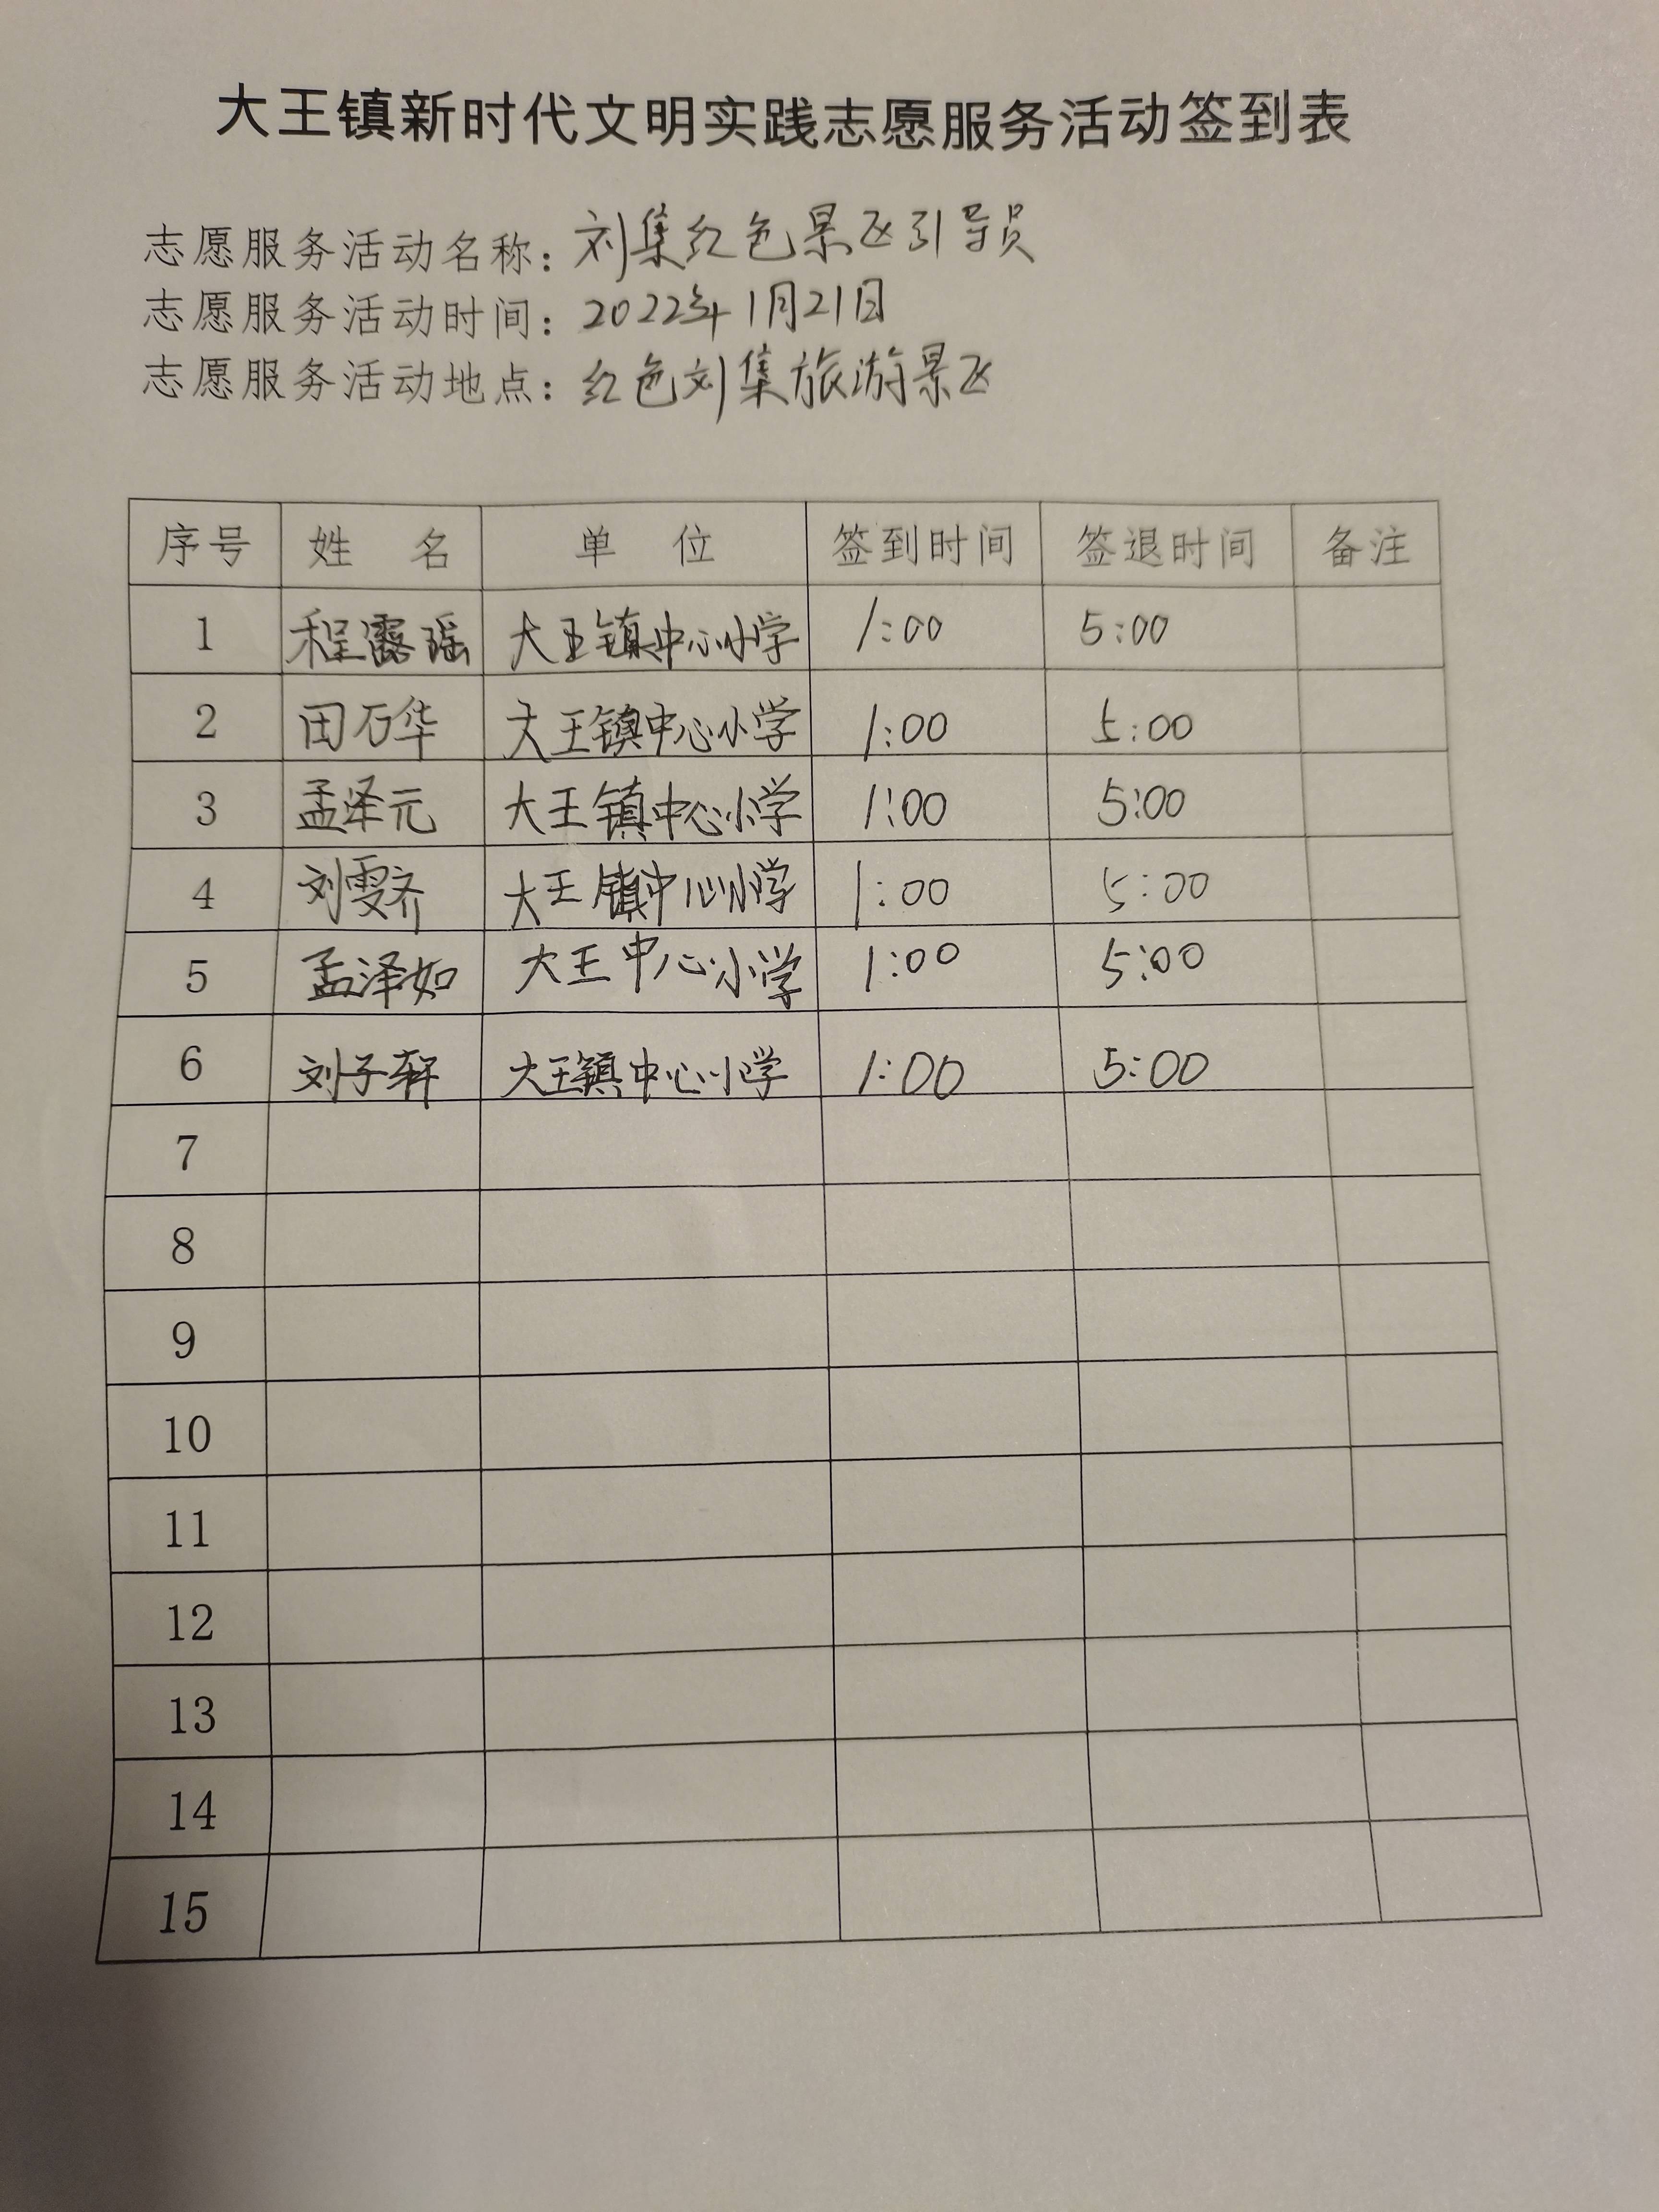 大王镇新时代文明实践志愿服务活动签到表
志愿服务活动名称：刘集红色景区引导员
志愿服务活动时间：2022年1月21日
志愿服务活动地点：红色刘集旅游景区
序号 姓 名 单 位 签到时间 签退时间 备注
1 程露瑶 大王镇中心小学 1:00 5:00
2 田万华 大王镇中心小学 1:00 5:00
3 孟泽元 大王镇中心小学 1:00 5:00
4 刘雯齐 大王镇中心小学 1:00 5:00
5 孟泽如 大王中心小学 1:00 5:00
6 刘子轩 大王镇中心小学 1:00 5:00
7
8
9
10
11
12
13
14
15